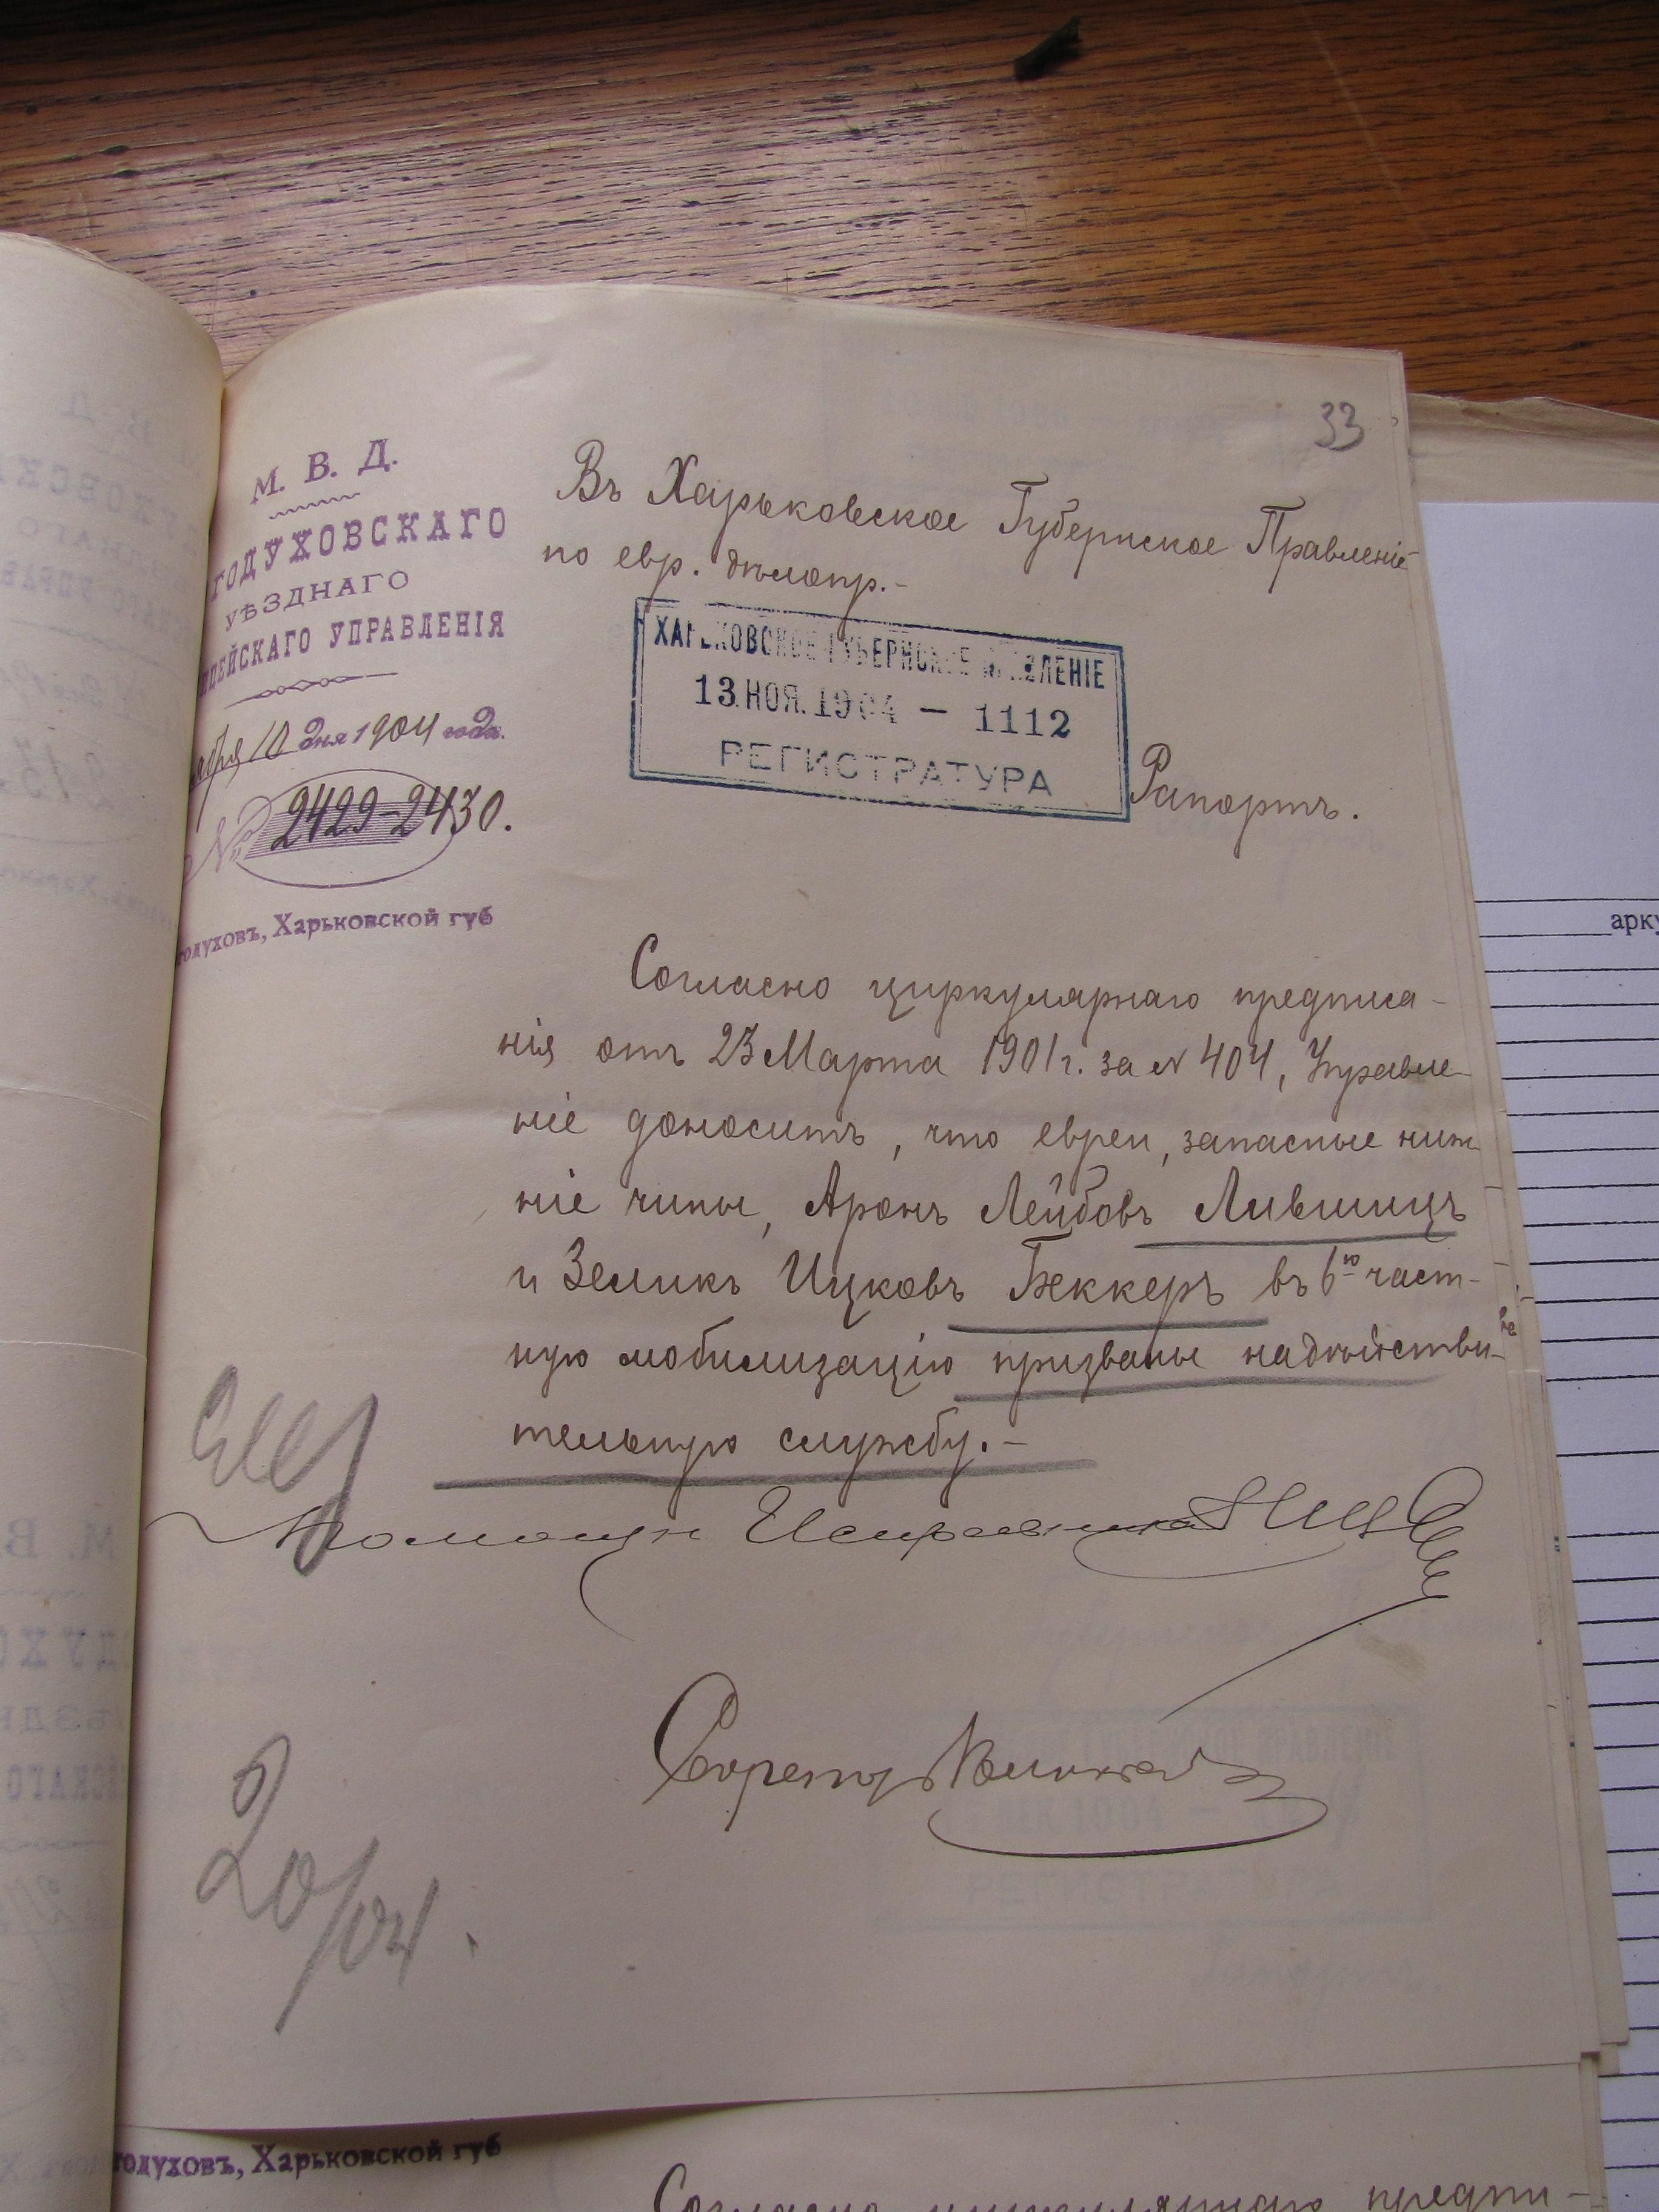 33
М. В. Д.
ГОДУХОВСКАГО
УѢЗДНАГО
ИЦЕЙСКАГО УПРАВЛЕНІЯ
ября 10 дня 1904 года.
№ 2429-2430.
годуховъ, Харьковской губ
Въ Харьковское Губернское Правленіе
по евр. дѣлопр.-
ХАРЬКОВСКОЕ ГУБЕРНСКОЕ ПРАВЛЕНІЕ
13.НОЯ.1904 — 1112
РЕГИСТРАТУРА
Рапортъ.
Согласно циркулярнаго предписа-
нія отъ 23 Марта 1901 г. за № 404, Управле-
ніе доноситъ, что евреи, запасные ниж
ніе чины, Аронъ Лейбовъ Лившицъ
и Зеликъ Ицковъ Беккеръ въ 6ю част-
ную мобилизацію призваны на дѣйстви-
тельную службу.-
Помощн Исправника
Секретарь
20/04.
годуховъ, Харьковской губ
Согласно циркулярнаго предпи-
арку